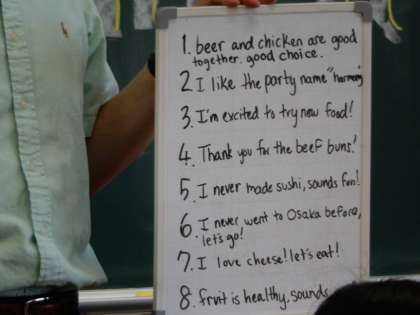 1. beer and chicken are good
together. good choice.
2 I like the party name "harmony"
3. I'm excited to try new food!
4. Thank you for the beef buns!
5 I never made sushi, sounds fun!
6 I never went to Osaka before,
let's go!
7. I love cheese! let's eat!
8. fruit is healthy, sounds